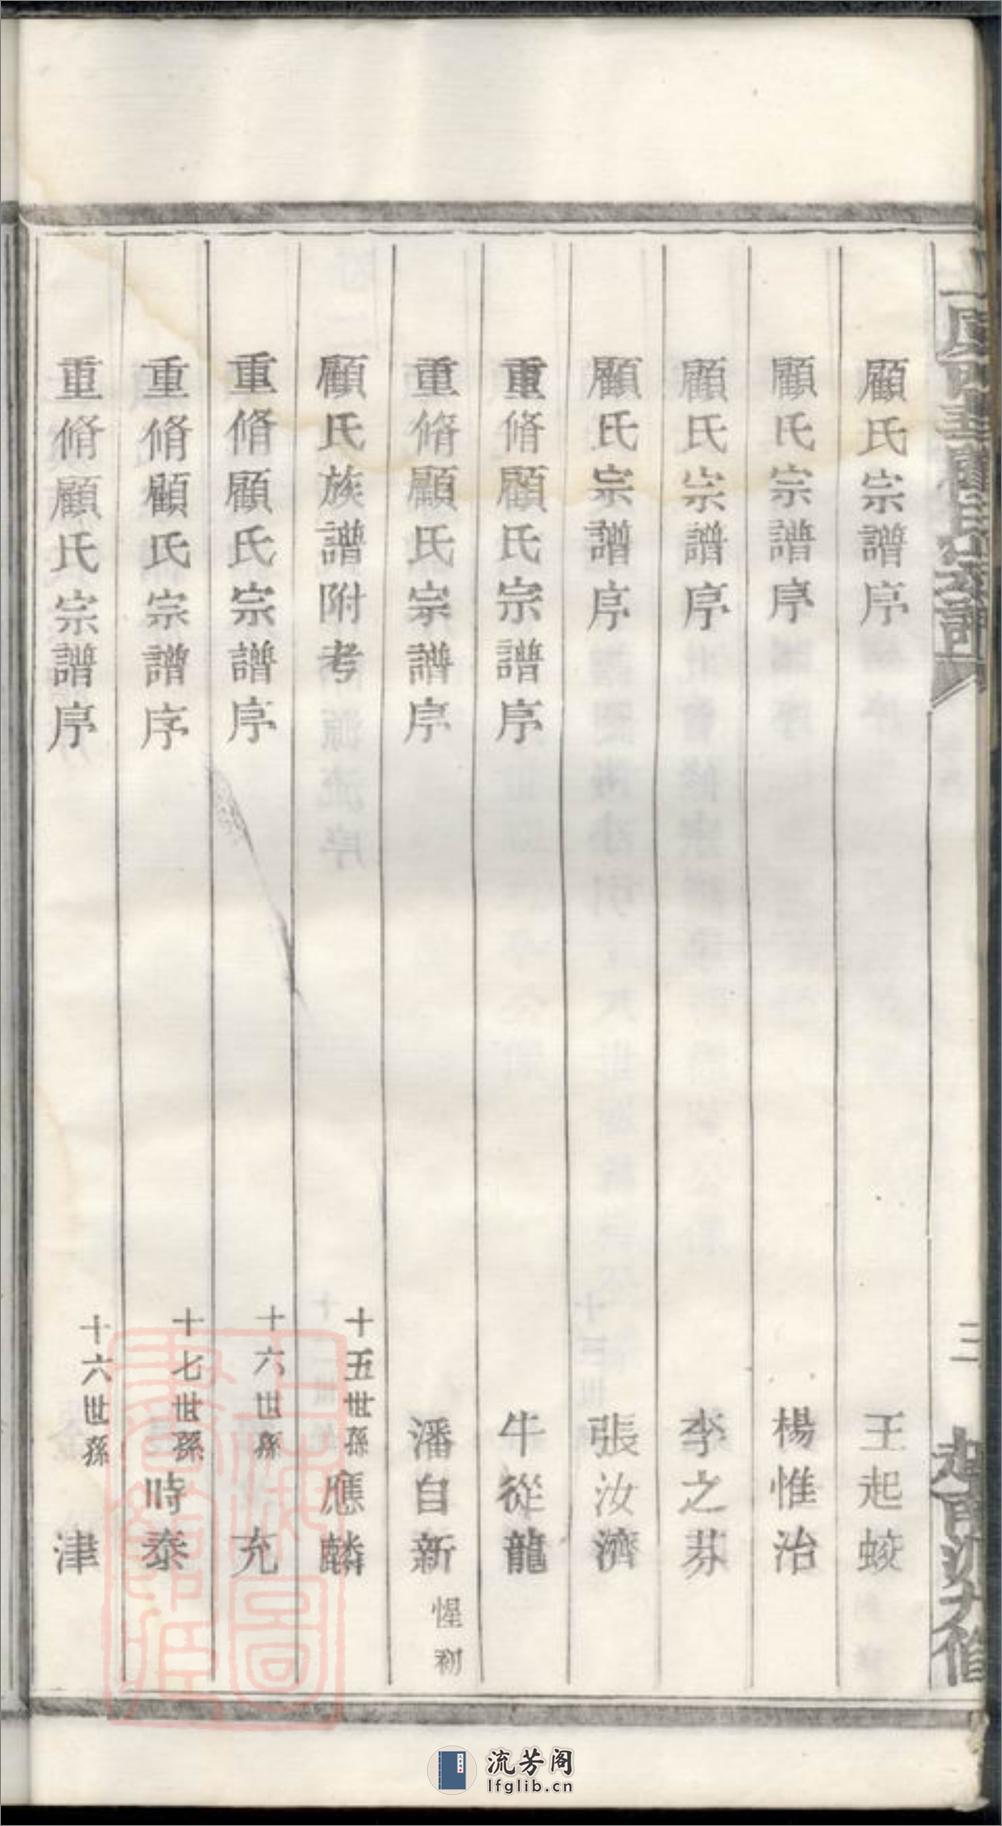 顧氏宗譜序 王起蛟
顧氏宗譜序 楊惟治
顧氏宗譜序 李之芬
顧氏宗譜序 張汝濟
重脩顧氏宗譜序 牛從龍
重脩顧氏宗譜序 潘自新 惺初
顧氏族譜附考 十五世孫 應麟
重脩顧氏宗譜序 十六世孫 充
重脩顧氏宗譜序 十七世孫 時泰
重脩顧氏宗譜序 十六世孫 津
三
流芳阁
lfglib.cn